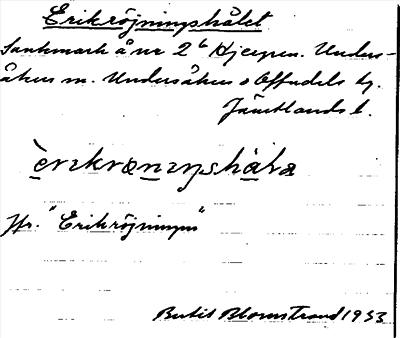 Erikröjningshålet
Sankmark å nr 2ᵇ Hjerpen. Unders-
åkers sn. Undersåkers o Offerdals tg.
Jämtlands l.
èrɩkrœnɩŋshàla
Jfr. "Erikröjningen"
Bertil Blomstrand 1933